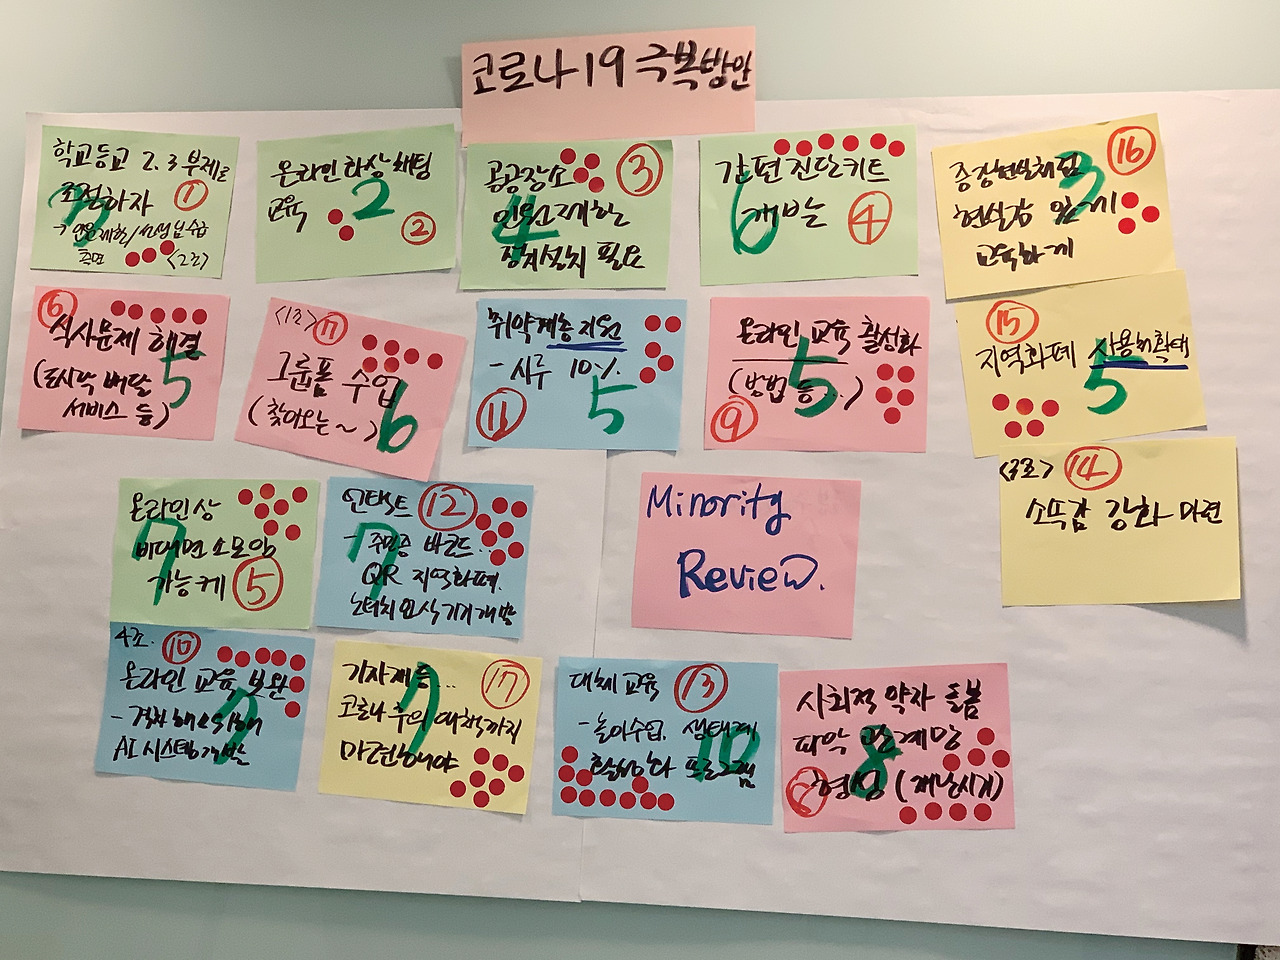 코로나19 극복방안
학교등교 2.3부제로
조절하자 ①
→ 인원제한/선생님 수급
측면 <2조>
3
온라인 화상채팅
교육
2
②
공공장소 ③
인원제한
장치설치 필요
4
간편 진단키트
개발 ④
6
⑯
증강현실체험
현실감 있게
교육하게
3
⑥
식사문제 해결
(도시락 배달
서비스 등)
5
<1조> ⑦
그룹폼 수업
(찾아오는~)
6
취약계층 지원
- 시루 10%
⑪ 5
온라인 교육 활성화
(방법 등...)
⑨ 5
⑮
지역화폐 사용처확대
5
<3조> ⑭
소속감 강화 마련
온라인상
비대면 소모임
가능케 ⑤
7
언택트 ⑫
- 주민증 바코드..
QR 지역화폐.
노터치 인식기기개발
7
Minority
Review.
4조. ⑩
온라인 교육 보완
- 격차해소위해
AI 시스템개발
7
기자재등.. ⑰
코로나 후의 대책까지
마련해야
7
대체 교육 ⑬
- 놀이수업. 생태계
프로그램
10
사회적 약자 돌봄
파악 관계망
형성 (재난시기)
8